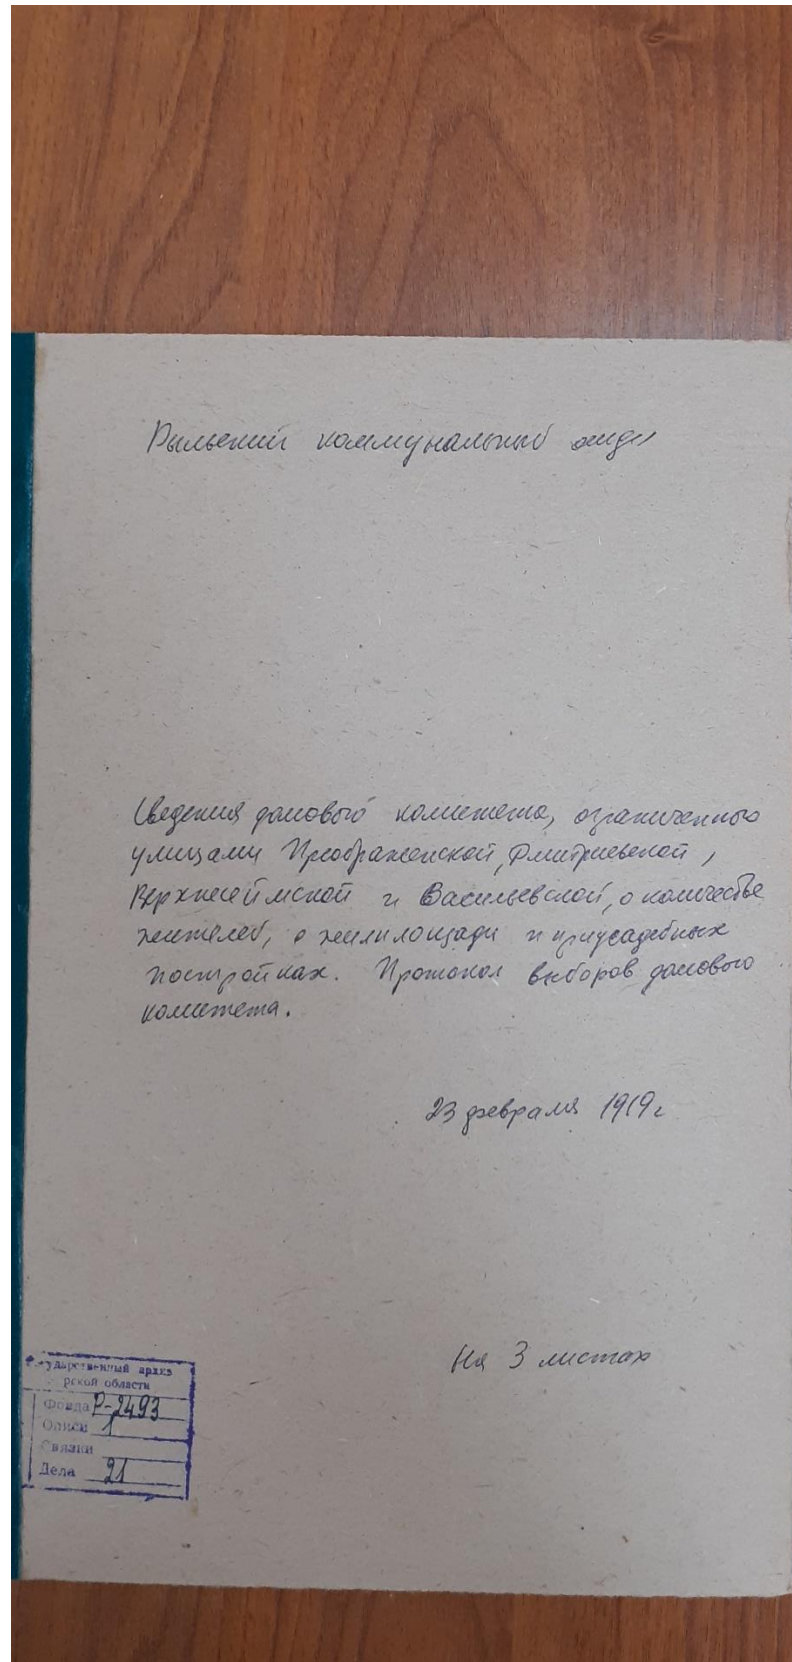 Рыльский коммунальный отдел
Сведения домового комитета, ограниченного
улицами Преображенской, Дмитриевской,
Верхнесеймской и Васильевской, о количестве
жителей, о жилплощади и приусадебных
постройках. Протокол выборов домового
комитета.
23 февраля 1919 г
На 3 листах
сударственный архив
рской области
Фонда Р-2493
Описи 1
Связки
Дела 21